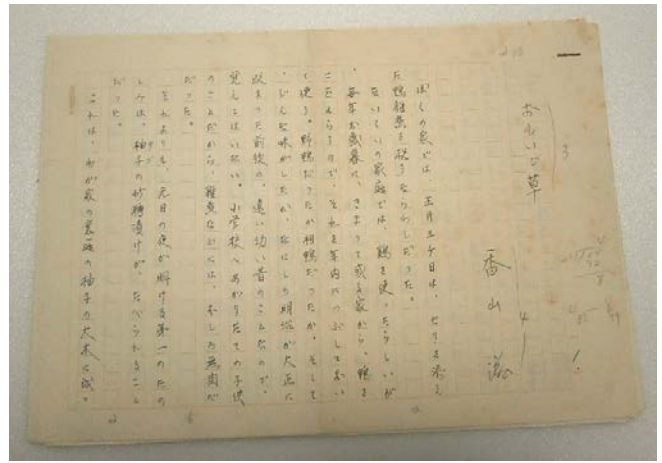 おもいで草
香山 滋
ぼくの家では、正月三ケ日は、せりを添え
た鴨雑煮を祝うならわしだった。
たいていの家庭では、鶏を使ったらしいが
、毎年お歳暮に、きまって或る家から、鴨を
て使う。野鴨だったか相鴨だったか、そして
、どんな味がしたか、なにしろ明治が大正に
改まった前後の、遠い幼い昔のことなので、
覚えてはいない。小学校へあがりたての子供
のことだから、雑煮なんかには、むしろ無関心
だった。
それよりも、元日の夜が明ける第一のたの
しみは、柚子の砂糖漬けが、たべられること
だった。
これは、わが家の裏庭の柚子の大木に成っ